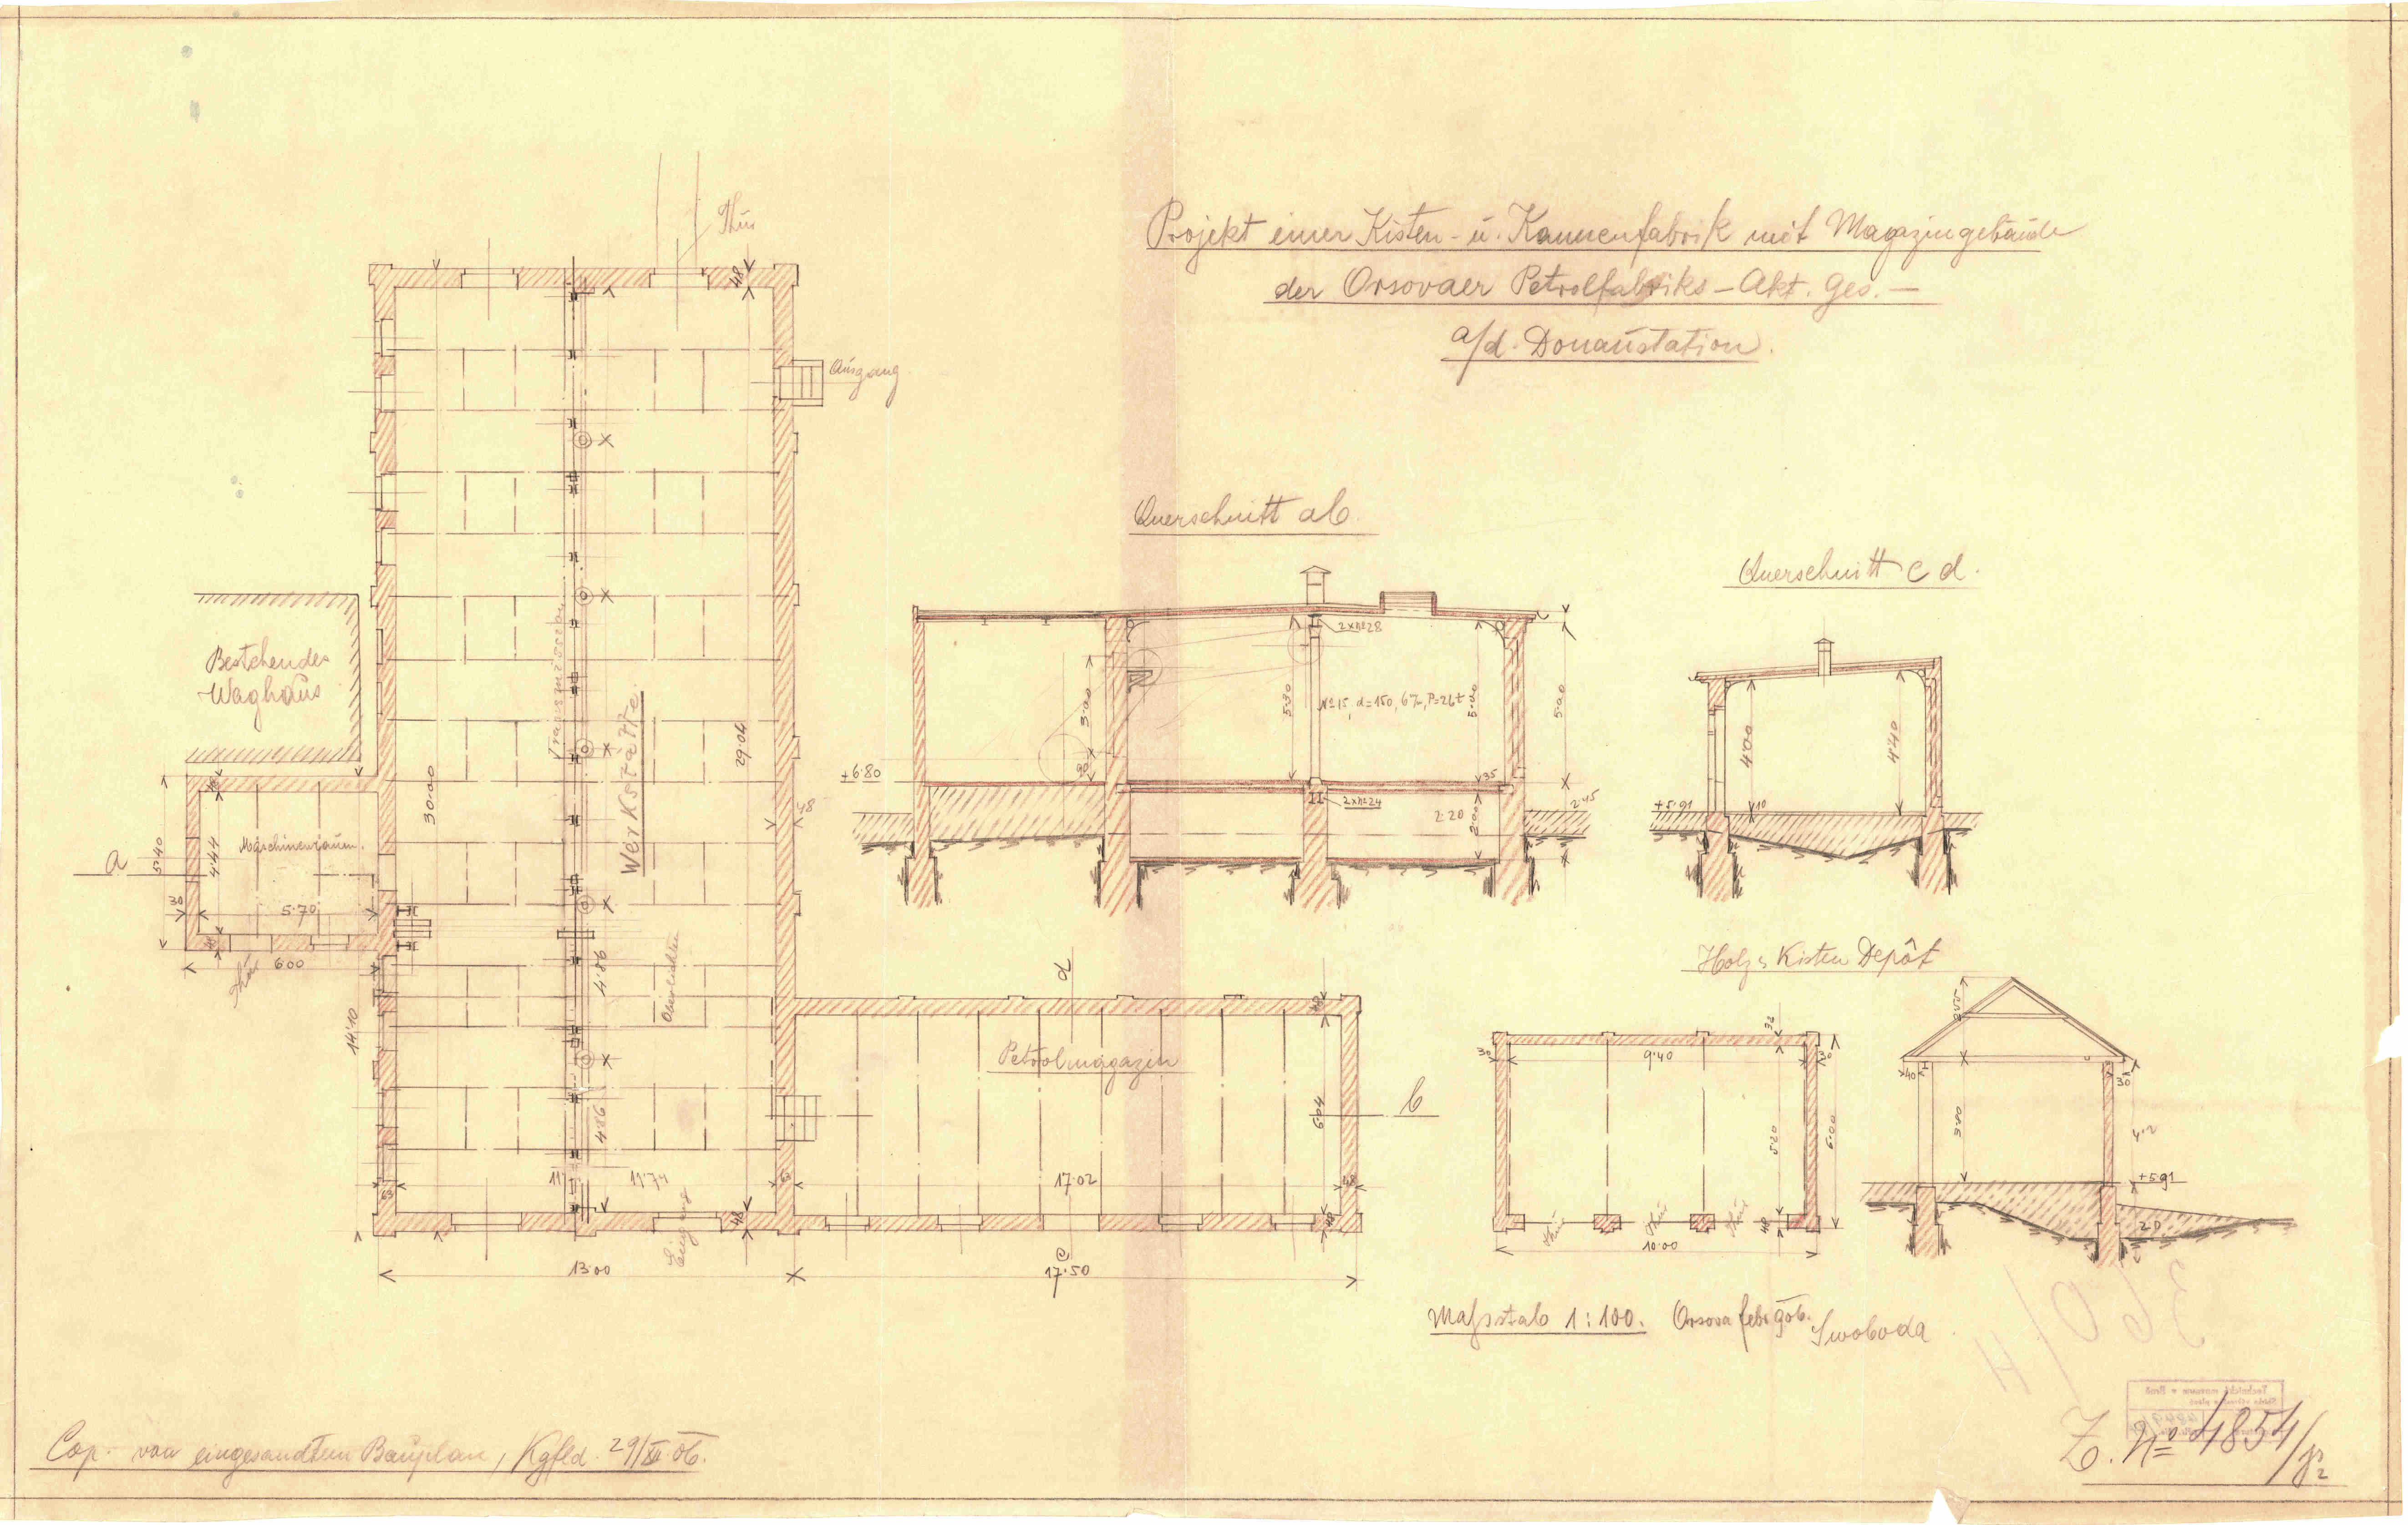 Projekt einer Kisten- u. Kannenfabrik mit Magazingebäude
der Orsovaer Petrolfabriks-Akt. Ges. —
a/d. Donaustation.
Thür
48
Ausgang
Querschnitt ab.
Querschnitt c d.
Bestehendes
Waghaus
Transmission
Werkstätte.
30·00
29·04
48
Maschinenraum.
a
5·40
4·44
30
5·70
6·00
Thür
14·10
4·86
Oberlichten
4·86
63
11·74
63
48
Eingang
13·00
d
Petrolmagazin
48
6·04
b
17·02
48
48
c
17·50
2×№28
5·30
№15, d=150, 6%, P=26t
5·00
5·00
3·00
90
+6·80
35
2×№24
2·20
2·00
2·45
4'00
4'40
+5·91
10
Holz & Kisten Depôt
32
30
9·40
30
5·20
6·00
Thür
Thür
Thür
48
10·00
40
30
3·80
4·2
+5·91
2·0
Maßstab 1:100. Orsova febr 906. Swoboda
Cop. von eingesandtem Bauplan, Kgfld. 29/XII. 06.
Technické museum v Brně
Z. № 4854/